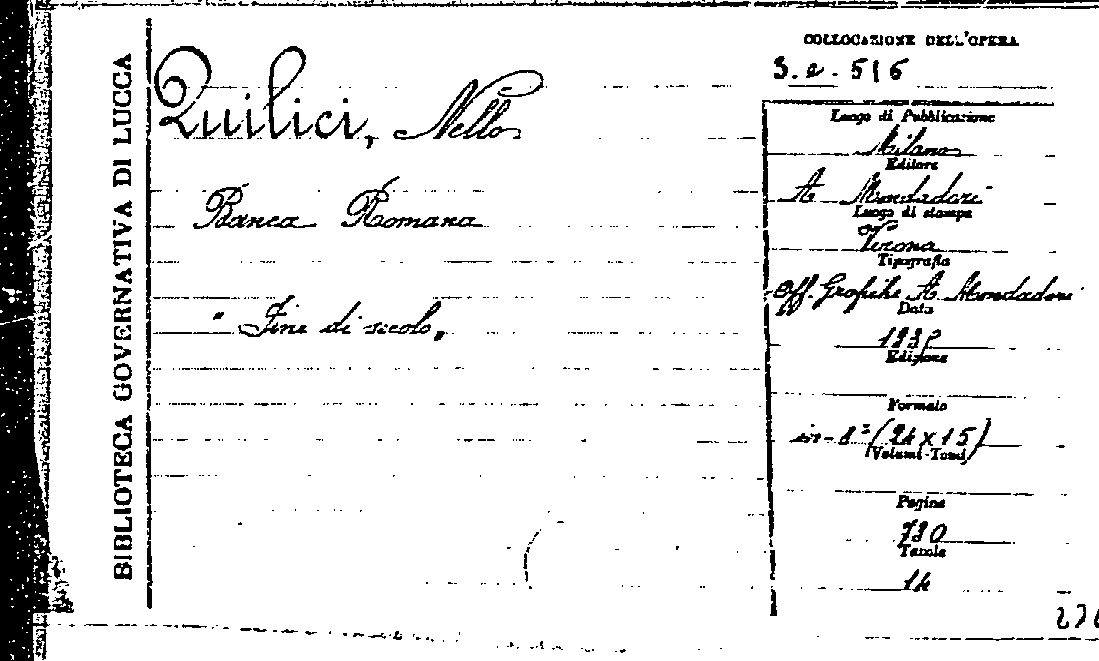 BIBLIOTECA GOVERNATIVA DI LUCCA
Quilici, Nello
Banca Romana
" Fine di secolo "
COLLOCAZIONE DELL'OPERA
3. e. 516
Luogo di Pubblicazione
Milano
Editore
A. Mondadori
Luogo di stampa
Verona
Tipografia
Off. Grafiche A. Mondadori
Data
Edizione
Formato
in-8° (24 x 15)
(Volumi-Tomi)
Pagine
730
Tavole
14